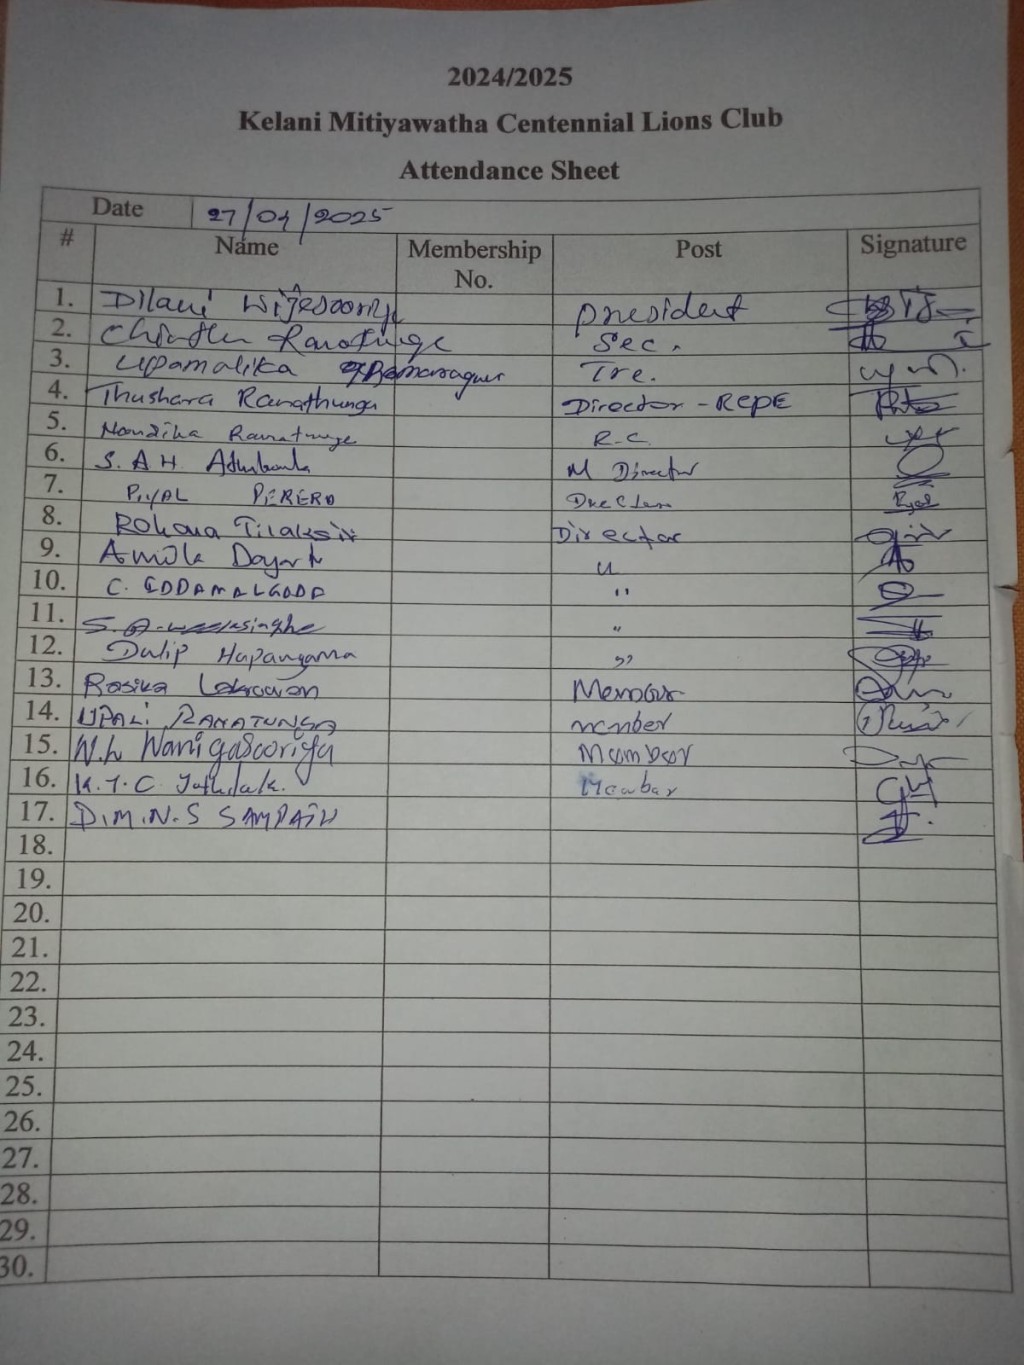 2024/2025
Kelani Mitiyawatha Centennial Lions Club
Attendance Sheet
Date 27/04/2025
# Name Membership No. Post Signature
1. Dilani Wijesooriya president
2. Ranatunge Sec.
3. Upamalika Tre.
4. Thushara Ranathunga Director - RCPE
5. Nandika Ranatunge R.C.
6. S. A. H. M Director
7. Piyal PERERA Director
8. Rohana Tilaksiri Director
9. Amila "
10. C. EDDAMALGODA "
11. "
12. Dulip Hapangama "
13. Rasika Member
14. UPALi RANATUNGA member
15. W.L Wanigasooriya Member
16. K.T.C. Member
17. D.M.N.S SAMPATH
18.
19.
20.
21.
22.
23.
24.
25.
26.
27.
28.
29.
30.